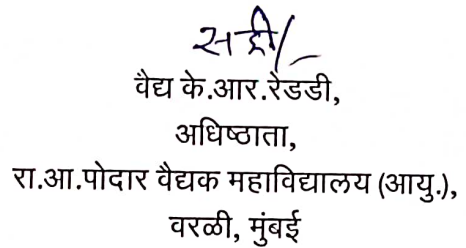 सही/-
वैद्य के.आर.रेडडी,
अधिष्ठाता,
रा.आ.पोदार वैद्यक महाविद्यालय (आयु.),
वरळी, मुंबई